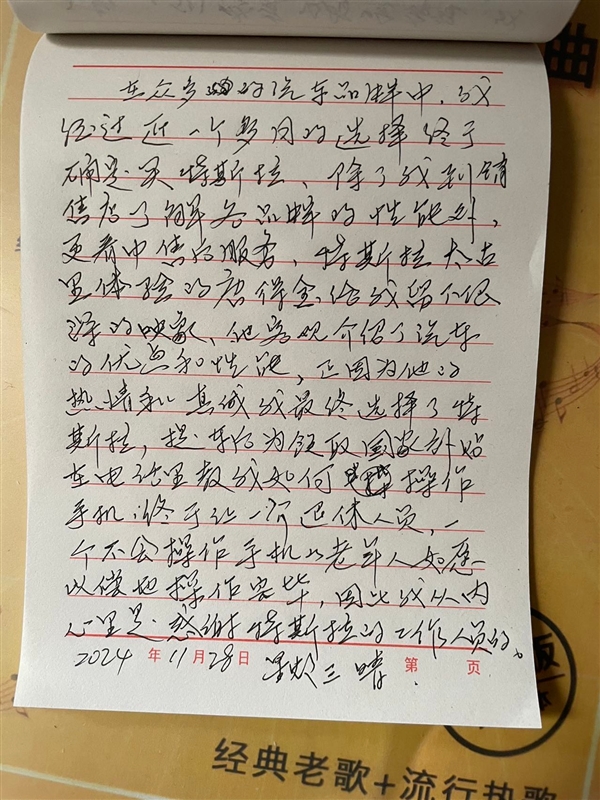 在众多的汽车品牌中，我
经过近一个多月的选择终于
确定买特斯拉、除了我到销
售店了解各品牌的性能外，
更看中售后服务、特斯拉太古
里体验的唐得金给我留下很
深的映象、他客观介绍了汽车
的优点和性能，正因为他的
热情和真诚我最终选择了特
斯拉，提车后为领取国家补贴
在电话里教我如何操作
手机；终于让一个退休人员，一
个不会操作手机的老年人如愿
以偿地操作完毕，因此我从内
心里是感谢特斯拉的工作人员的。
2024年11月28日 三晴 第 页
曲
版
经典老歌+流行热歌